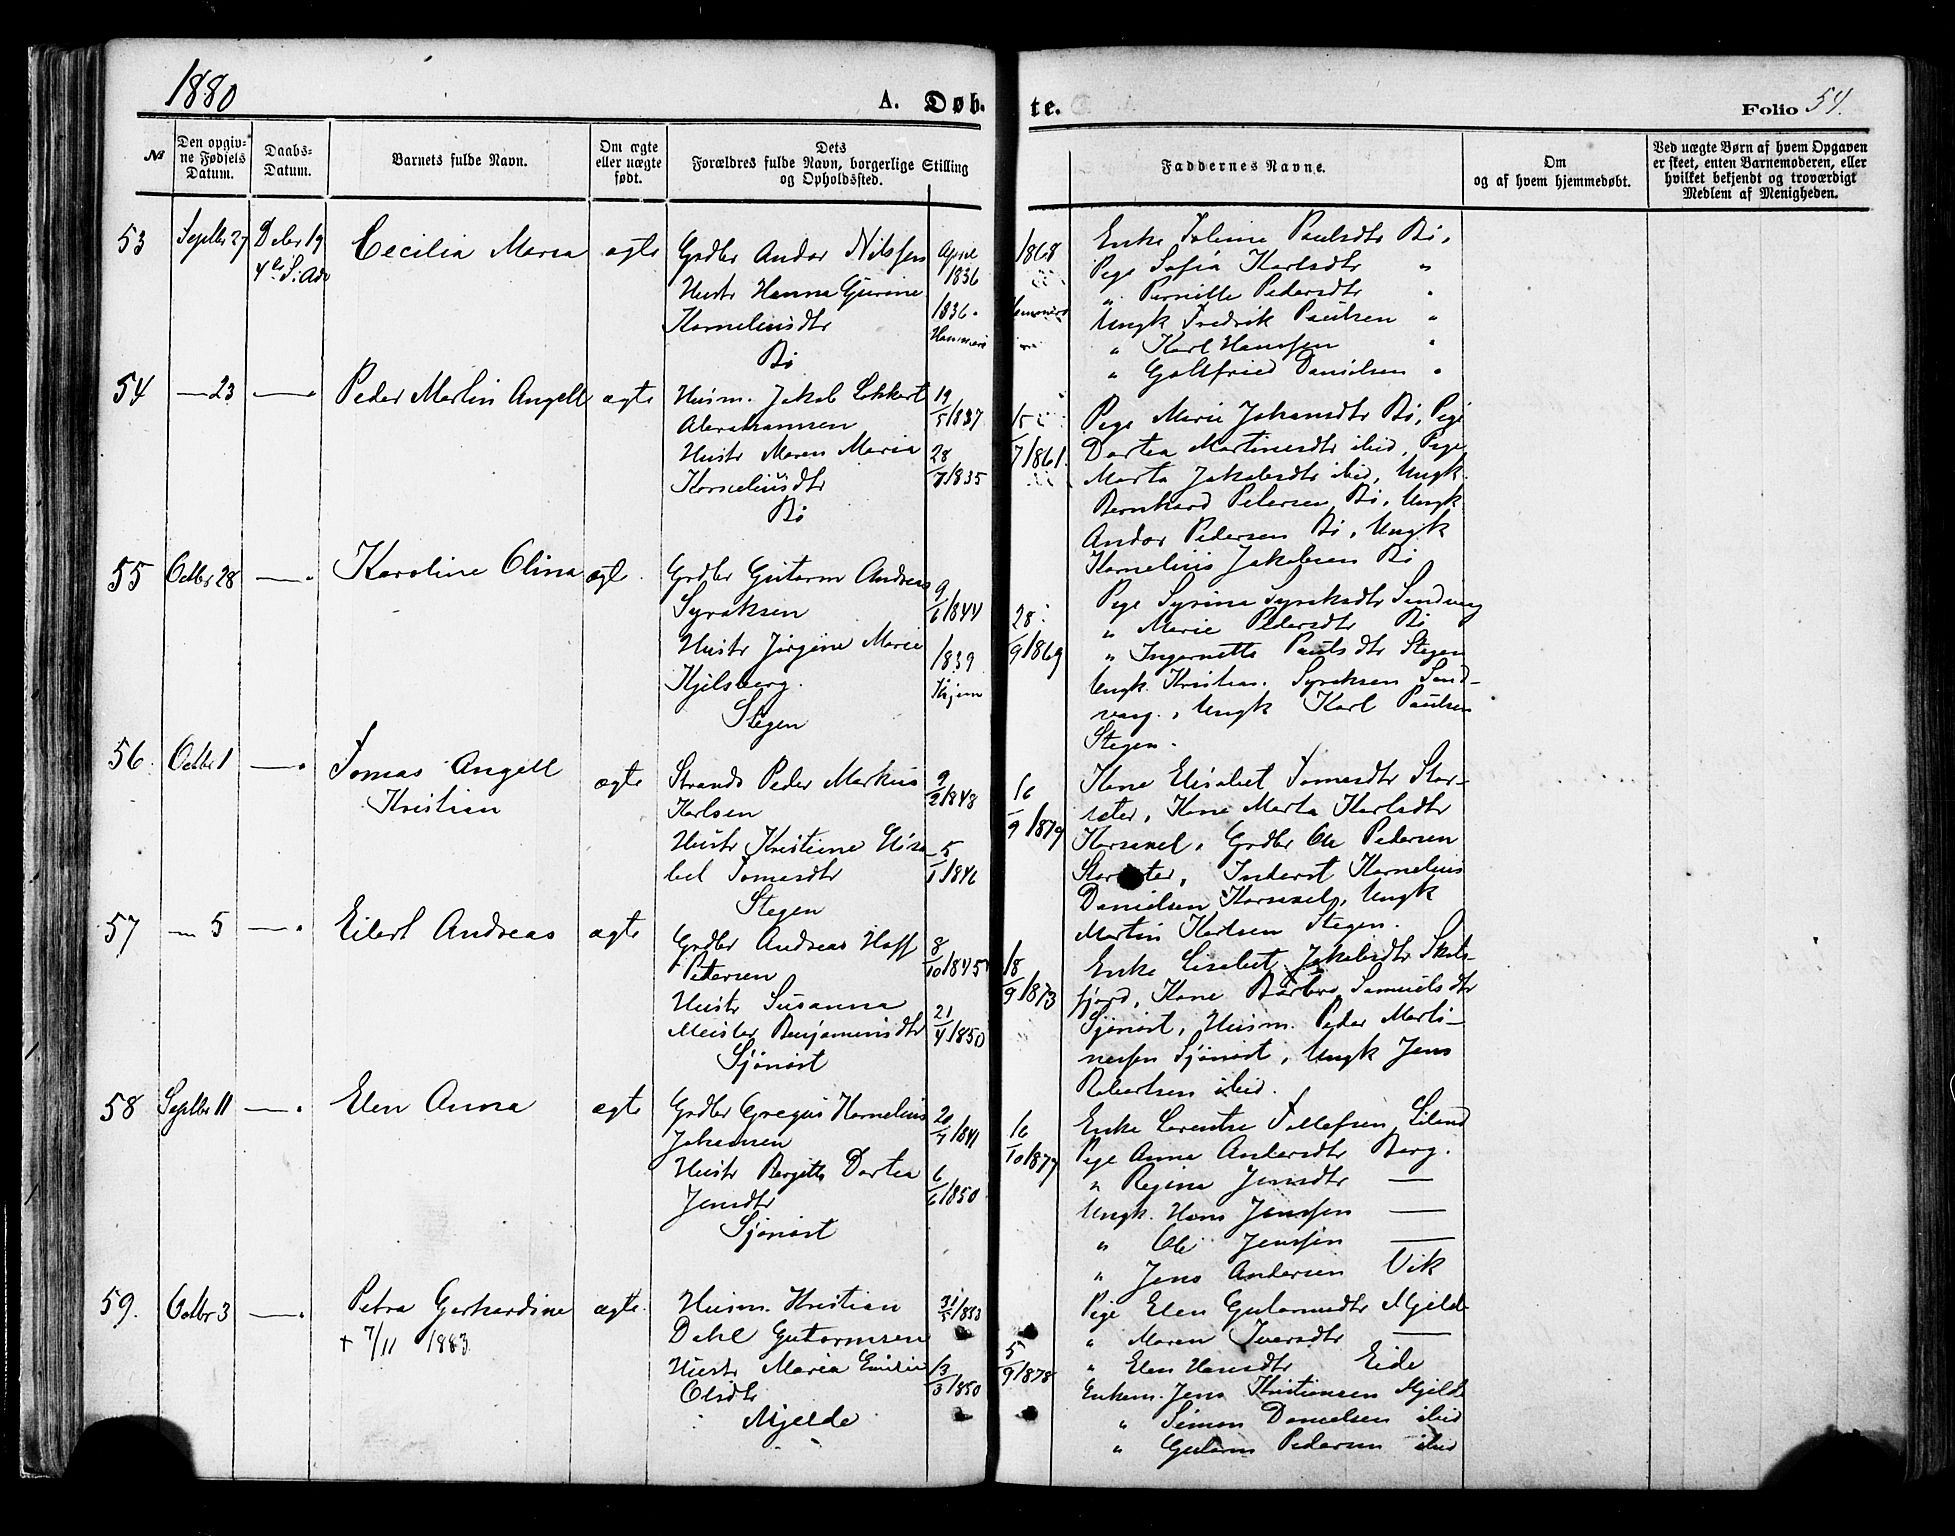 1880
A. Døb.
te.
Folio 54.
№
Den opgivne Fødsels Datum.
Daabs-Datum.
Barnets fulde Navn.
Om ægte eller uægte født.
Dets Forældres fulde Navn, borgerlige Stilling og Opholdssted.
Faddernes Navne.
Om og af hvem hjemmedøbt.
Ved uægte Børn af hvem Opgaven er skeet, enten Barnemoderen, eller hvilket bekjendt og troværdigt Medlem af Menigheden.
53 Septbr 27 Dcbr 19
Cecilia Maria ægte
Grdbr Andor Nilssen April 1836
Hustr Hanna Gurine
Korneliusdtr 1836.
Bö
1868
Enke Joline Paulsdtr Bö,
Pige Sofia Karlsdtr "
" Pernille Pedersdtr "
Ungk Fredrik Paulsen "
" Karl Hanssen "
" Galtfried Danielsen "
54 — 23 —"
Peder Martin Angell ægte
Husm. Jakob Lokkert 19/5 1837
Abrahamsen
Hustr Maren Maria 28/7 1835
Kornelius dtr
Bö
7/1861.
Pige Marie Johansdtr Bö, Pige
Dortea Martinesdtr ibid, Pige
Marta Jakobsdtr ibid, Ungk.
Bernhard Petersen Bö, Ungk
Andor Pedersen Bö, Ungk
Kornelius Jakobsen Bö
55 Octbr 28 —"
Karoline Olina ægte
Grdbr Gutorm Andreas
Syraksen 9/6 1844
Hustr Jørgine Marie 1839
Kjelsberg.
Stegen
28/9 1869
Pige Syrina Syraksdtr Sandvaag
" Marie Pedersdtr Bö
" Ingernette Paulsdtr Stegen
Ungk. Kristian. Syraksen Sand-
vaag., Ungk Karl Paulsen
Stegen.
56. Octbr 1 —"
Tomas Angell
Kristian
ægte
Strands Peder Markus 9/2 1848
Karlsen
Hustr Kristine Elisa-
bet Tomasdtr 5/1 1846
Stegen
16/9 1879
Kone Elisabet Tomasdtr Stor-
sæter, Kone Marta Karlsdtr
Korsnæs, Grdbr Ole Pedersen
Storsæter, Inderst Kornelius
Danielsen Korsnæs, Ungk
Martin Karlsen Stegen.
57 — 5 —"
Eilert Andreas ægte
Grdbr Andreas Hoff 8/10 1845
Petersen
Hustr Susanna 21/4 1850
Meister Benjaminsdtr
Sjönöst
18/9 1873
Enke Lisabet Jakobsdtr Skots-
fjord, Kone Barbro Samuelsdtr
Sjönöst, Husm. Peder Marti-
nussen Sjönöst, Ungk Jens
Robertsen ibid.
58 Septbr 11 —"
Elen Anna ægte
Grdbr Gregus Kornelius 20/7 1841
Johansen
Hustr Bergitte Dortea 6/6 1850
Jensdtr
Sjönöst
16/10 1877
Enke Lorentse Tollefsen Leland
Pige Anna Andersdtr Borg.
" Regine Jensdtr —
Ungk. Hans Jenssen —
" Ole Jenssen —
" Jens Andersen Vik
59. Octbr 3 —"
Petra Gerhardine ægte.
+ 7/11 1883
Husm. Kristian 31/5 1853
Dahl Gutormsen
Hustr Maria Emilie 13/3 1850
Olsdtr
Mjelde
5/9 1878
Pige Elen Gutormsdtr Mjelde
" Maren Iversdtr —
" Elen Hansdtr Eide
Enkem. Jens Kristiansen Mjelde
" Simon Danielsen ibid
" Gutorm Pedersen ibid